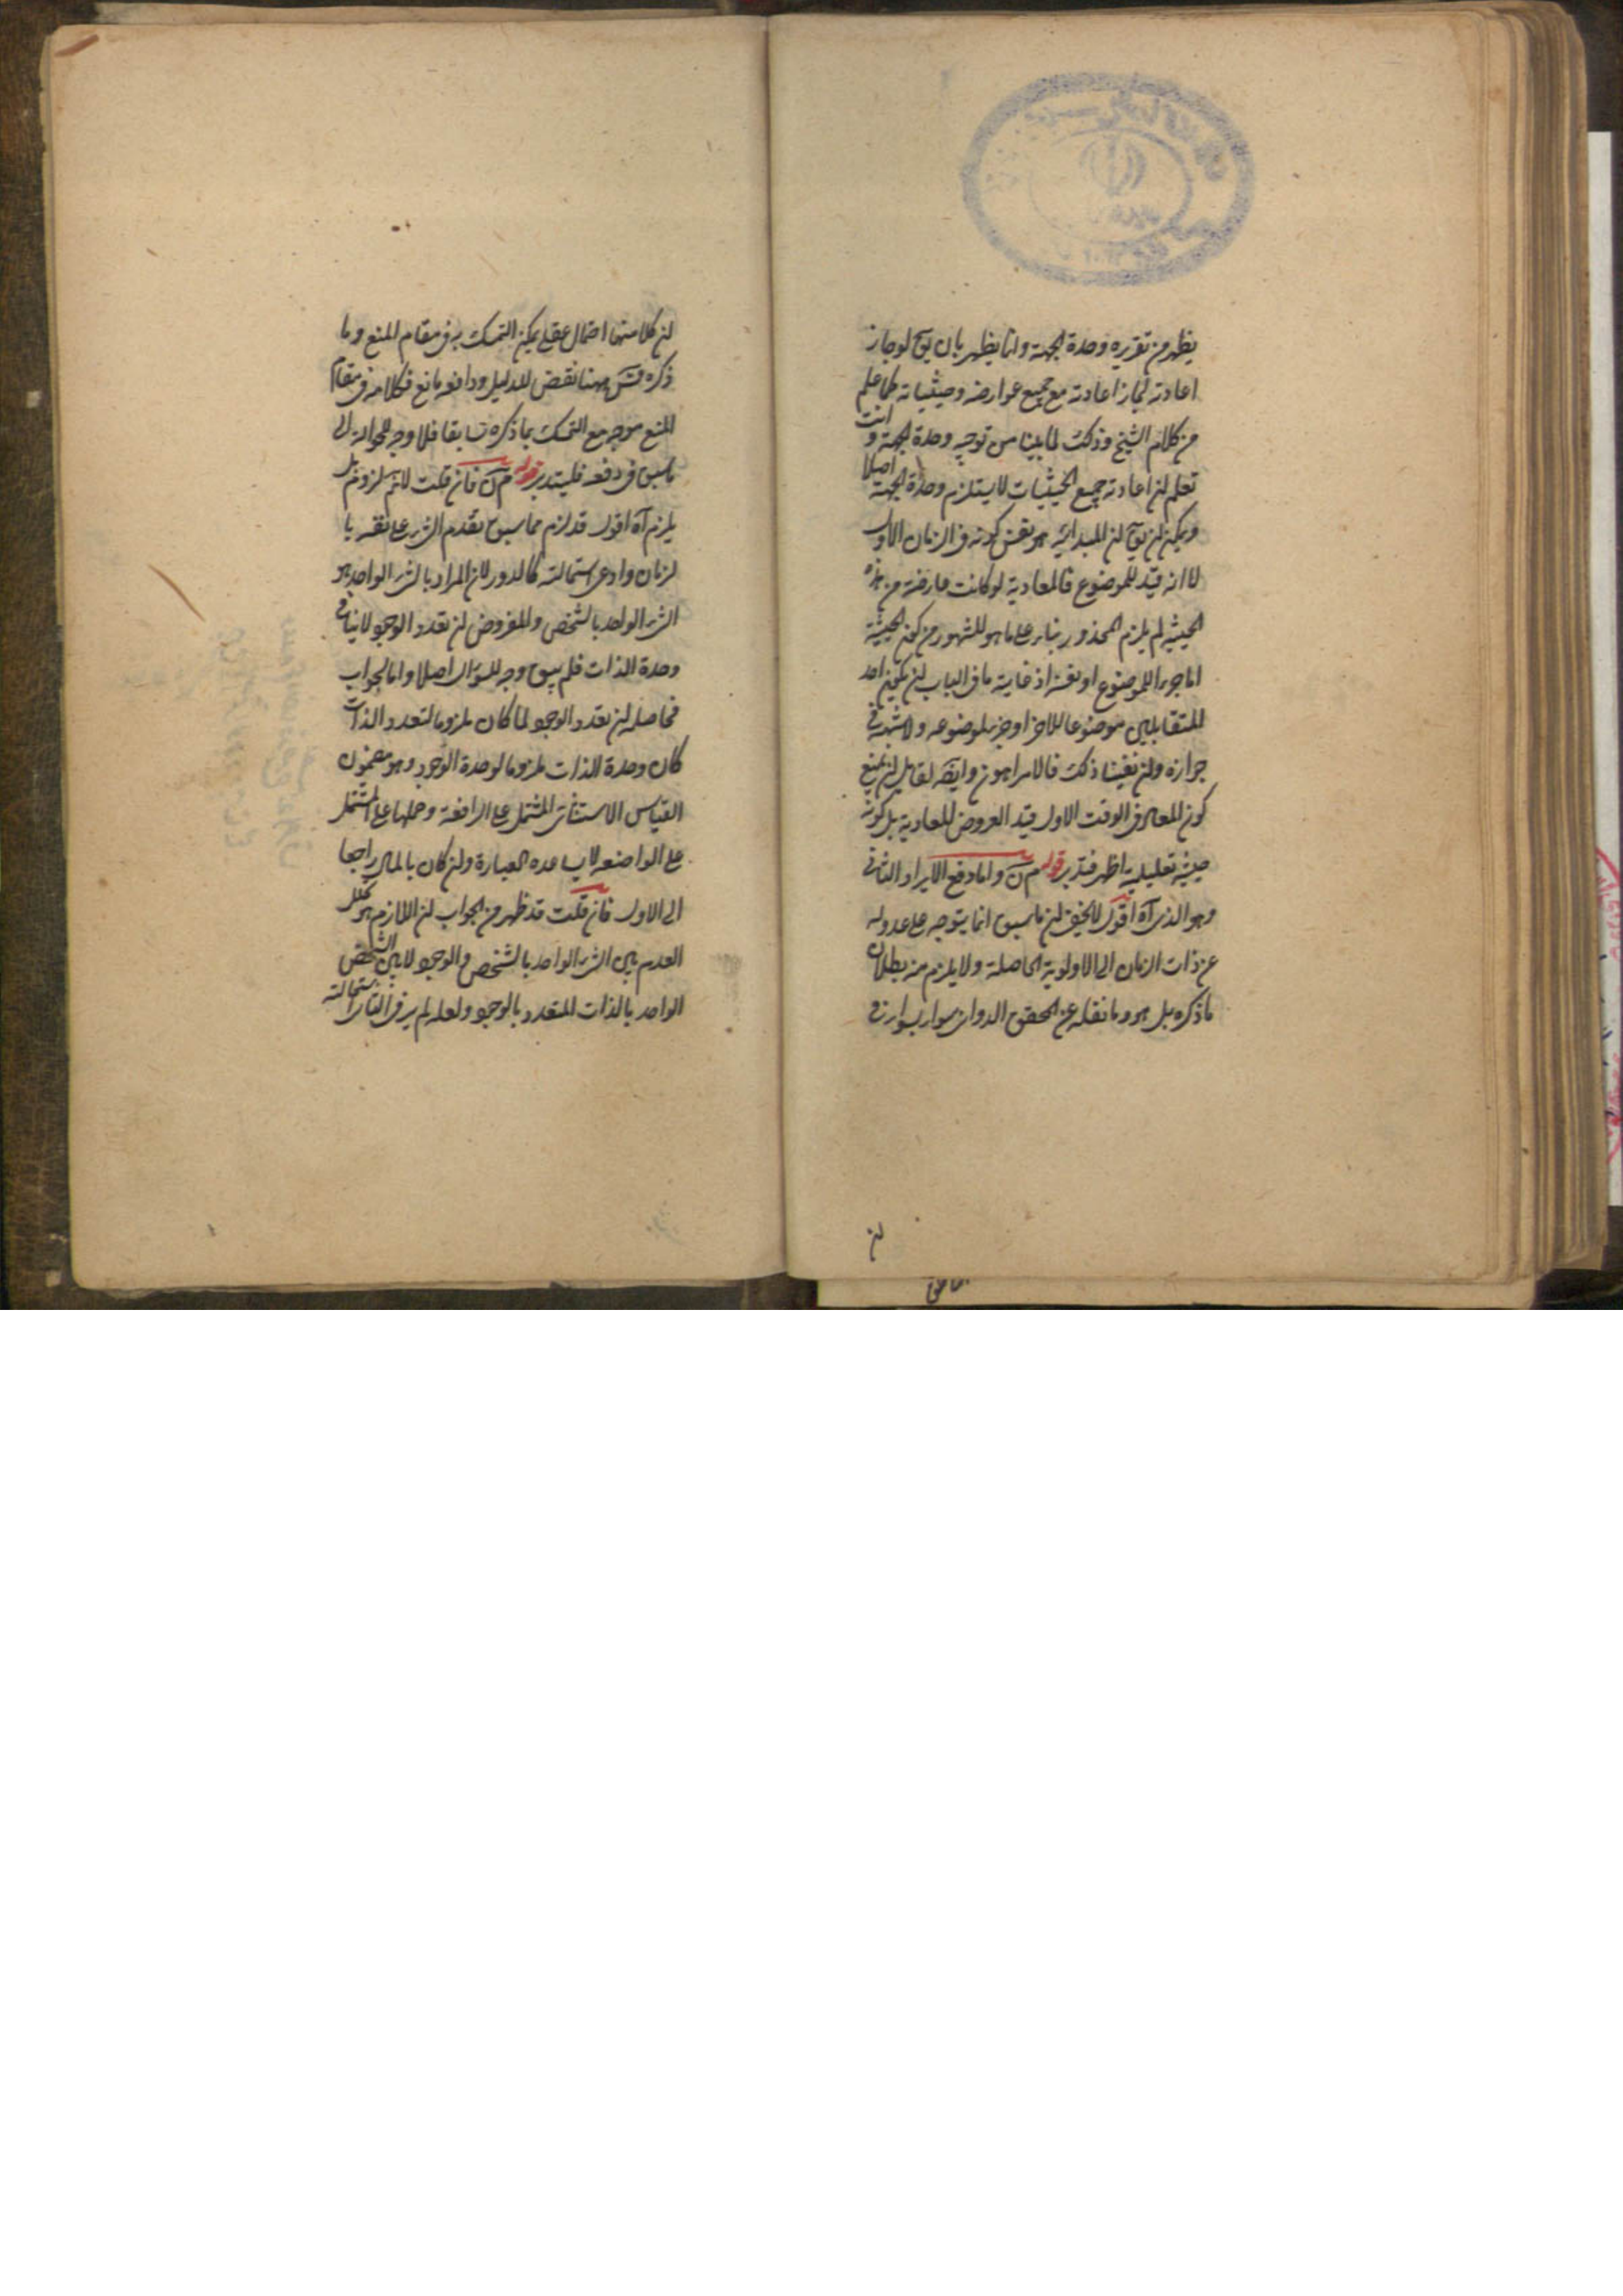 يظهر من تقريره وحدة الجهة وانما يظهر بان يق لو جاز
اعادته لجاز اعادته مع جميع عوارضه وحيثياته كما علم
من كلام الشيخ وذلك لما بينا من توجيه وحدة الجهة و انت
تعلم ان اعادته جميع الحيثيات لا يستلزم وحدة الجهة اصلا
ويمكن ان يق ان المبدائيه هو نفس كونه في الزمان الاول
لا انه قيد للموضوع فالمعادية لو كانت عارضة من هذه
الحيثية لم يلزم المحذور بناء على ما هو المشهور من كون الحيثية
اما جزء الموضوع او نفسه اذ غاية ما في الباب ان يكون احد
المتقابلين موضوعا للاخر او جزء لموضوعه ولا شبهة في
جوازه وان نفينا ذلك فالامر اهون وايضا لقائل ان يمنع
كون المعاد في الوقت الاول قيد العروض للمعادية بل كونه
حيثية تعليلية اظهر فتدبر قوله م ن واما دفع الايراد الثاني
وهو الذي آه اقول لا يخفى ان ما سبق انما يتوجه على عدوله
عن ذات الزمان الى الاولوية الحاصلة ولا يلزم منه بطلان
ما ذكره بل هو وما نقله عن المحقق الدواني سواء بسواء في
ان
ان كلا منهما احتمال عقلي يمكن التمسك به في مقام المنع وما
ذكره ههنا نقض للدليل ودافعه مانع فكلامه في مقام
المنع موجه مع التمسك بما ذكره سابقا فلا وجه للحوالة الى
ما سبق في دفعه فليتدبر قوله م ن فان قلت لا نم لزوم بل
يلزم آه اقول قد لزم مما سبق تقدم الشيء على نفسه با
لزمان وادعى استحالته كالدور لان المراد بالشيء الواحد هو
الشيء الواحد بالشخص والمفروض ان تعدد الوجود لا ينافي
وحدة الذات فلم يبق وجه للسؤال اصلا واما الجواب
فحاصله ان تعدد الوجود لما كان ملزوما لتعدد الذات
كان وحدة الذات ملزوما لوحدة الوجود وهو مضمون
القياس الاستثنائي المشتمل على الرافعة وحملها على المشتمل
على الواضعه لا يساعده العبارة وان كان بالمال راجعا
الى الاول فان قلت قد ظهر من الجواب ان اللازم هو تخلل
العدم بين الشيء الواحد بالشخص والوجود لا بين الشخص
الواحد بالذات المتعدد بالوجود ولعله لم ير في الثاني استحالته